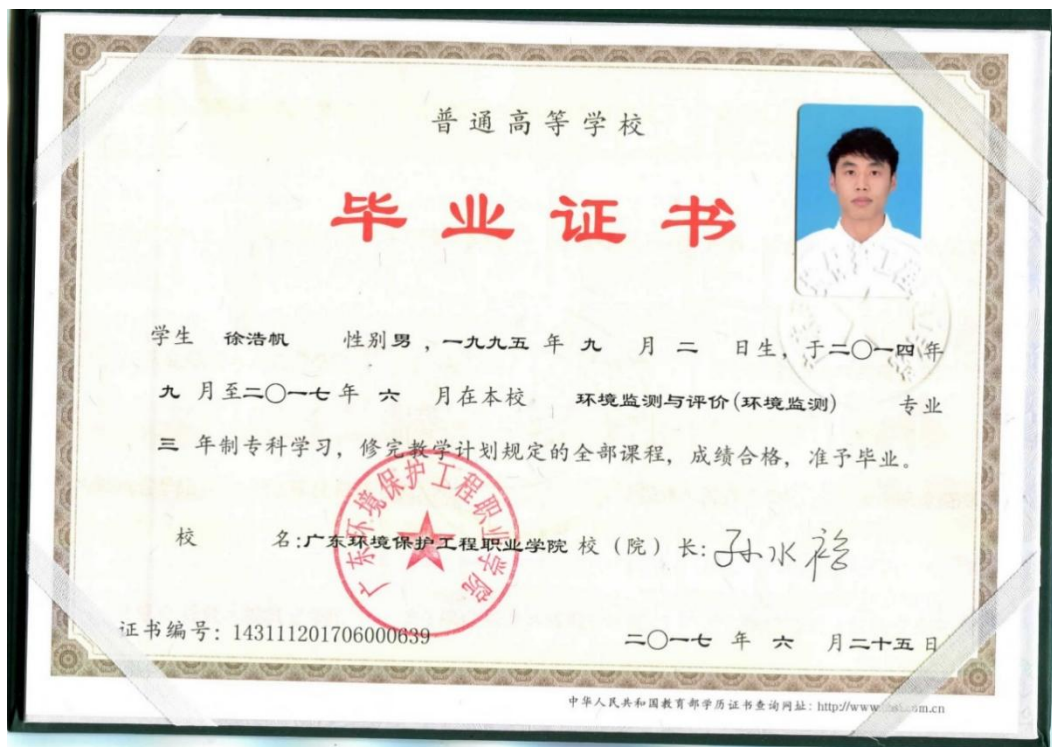 普通高等学校
毕业证书
学生 徐浩帆 性别男，一九九五年九月二日生，于二〇一四年
九月至二〇一七年六月在本校 环境监测与评价(环境监测) 专业
三年制专科学习，修完教学计划规定的全部课程，成绩合格，准予毕业。
校名:广东环境保护工程职业学院 校（院）长:孙水裕
广东环境保护工程职业学院
证书编号：143111201706000639 二〇一七年六月二十五日
中华人民共和国教育部学历证书查询网址：http://www